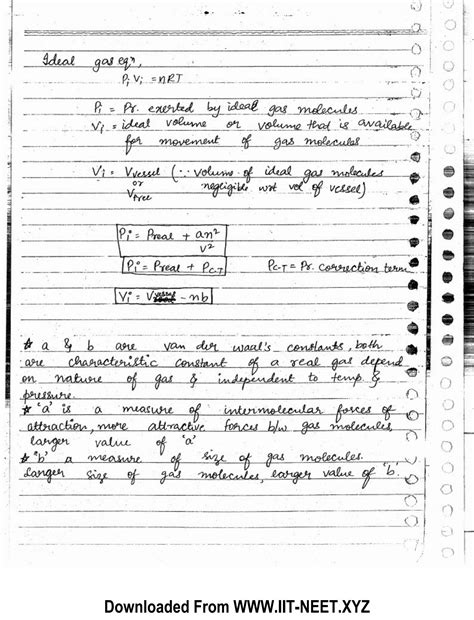 Ideal gas eqn,
PiVi = nRT
Pi = Pr. exerted by ideal gas molecules
Vi = ideal volume or volume that is available
for movement of gas molecules
Vi = Vvessel (∵ volume of ideal gas molecules
or negligible wrt vol of vessel)
Vfree
Pi = Preal + an²
V²
Pi = Preal + PC-T PC-T = Pr. correction term
Vi = Vvessel - nb
* a & b are van der waal's constants, both
are characteristic constant of a real gas depend
on nature of gas & independent to temp. &
pressure.
* 'a' is a measure of intermolecular forces of
attraction, more attractive forces b/w gas molecules,
larger value of 'a'
* 'b' a measure of size of gas molecules.
Larger size of gas molecules, larger value of 'b'.
Downloaded From WWW.IIT-NEET.XYZ